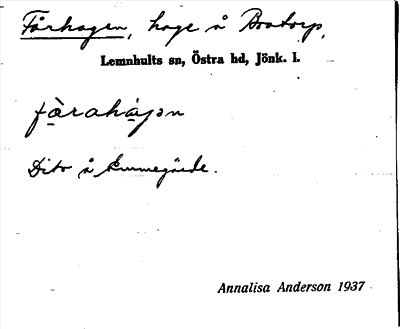 Fårhagen, hage å Brotorp,
Lemnhults sn, Östra hd, Jönk. l.
fàrahàgan
Dito å Emmegärde.
Annalisa Anderson 1937